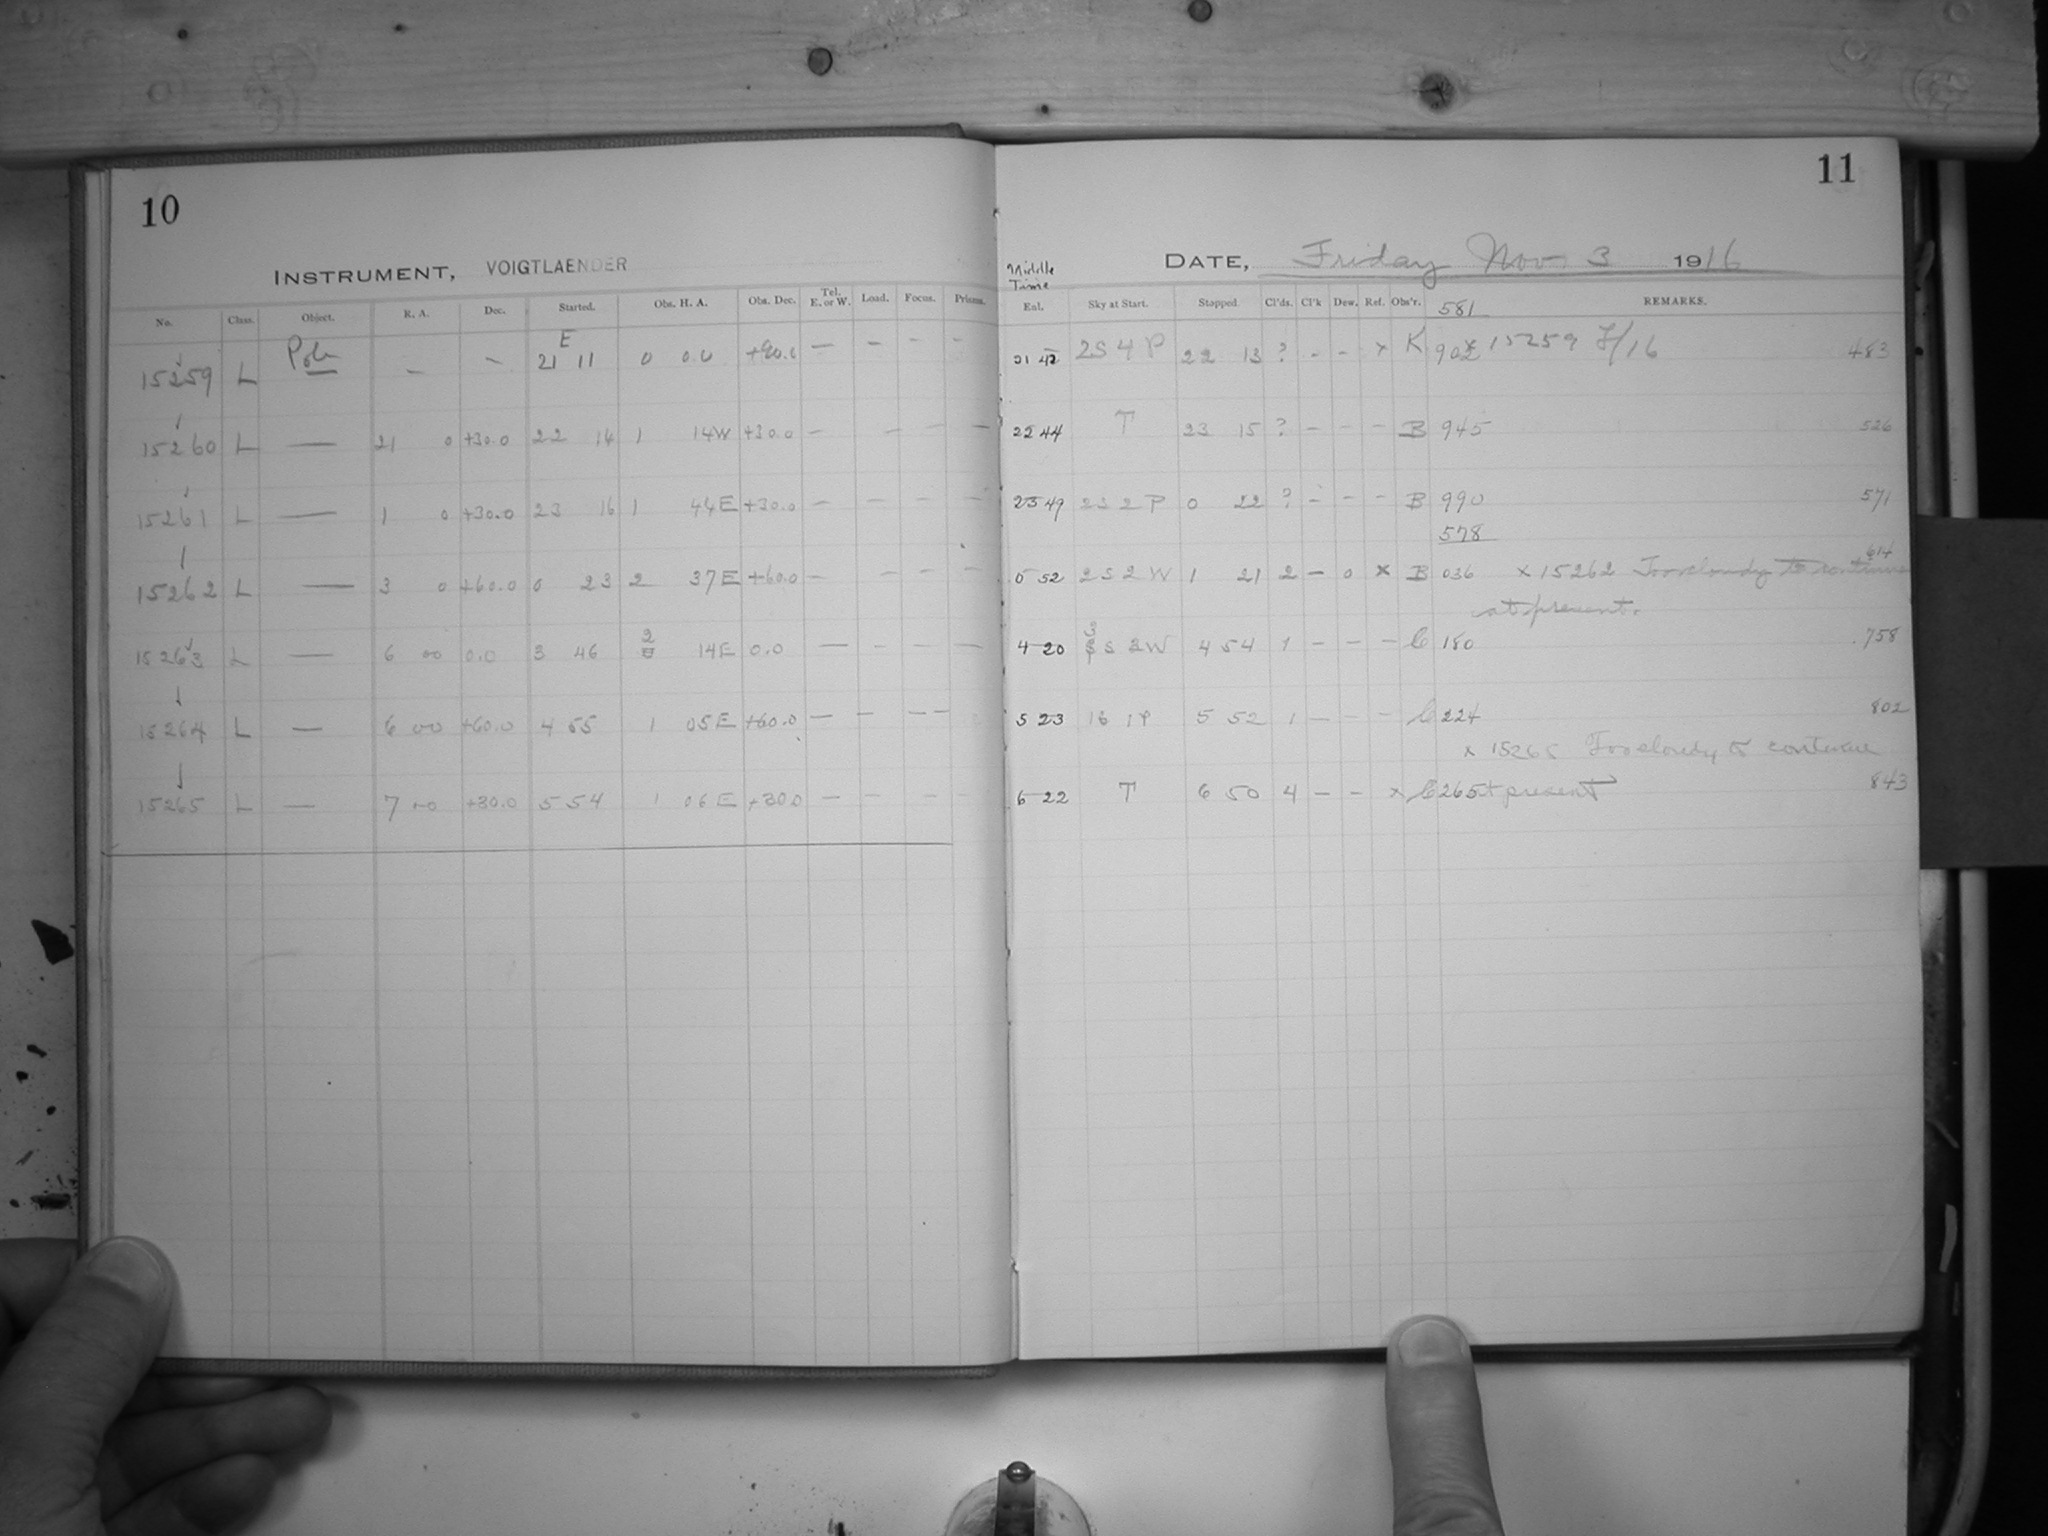 10
INSTRUMENT, VOIGTLAENDER
No. Class. Object. R. A. Dec. Started. Obs. H. A. Obs. Dec. Tel. E. or W. Load. Focus. Prisms.
15259 L Pole — — E 21 11 0 0.0 +90.0 — — — — —
15260 L — 21 0 +30.0 22 14 1 14W +30.0 — — — —
15261 L — 1 0 +30.0 23 16 1 44E +30.0 — — — —
15262 L — 3 0 +60.0 0 23 2 37E +60.0 — — — —
15263 L — 6 00 0.0 3 46 2 14E 0.0 — — — —
15264 L — 6 00 +60.0 4 55 1 05E +60.0 — — — —
15265 L — 7 00 +30.0 5 54 1 06E +30.0 — — — —
11
DATE, Friday Nov. 3 1916
Middle Time
Enl. Sky at Start. Stopped. Cl'ds. Cl'k Dew. Ref. Obs'r. 581 REMARKS.
21 42 2S 4 P 22 13 ? - - x K 902 x 15259 F/16 483
22 44 T 23 15 ? - - - B 945 526
23 49 2S 2 P 0 22 ? - - - B 990 571
578
0 52 2S 2 W 1 21 2 - 0 x B 036 x 15262 Too cloudy to continue 614
at present.
4 20 3 S 2W 4 54 1 - - - C 180 758
5 23 1S 1P 5 52 1 - - - C 224 802
x 15265 Too cloudy to continue
6 22 T 6 50 4 - - x C 265 at present 843